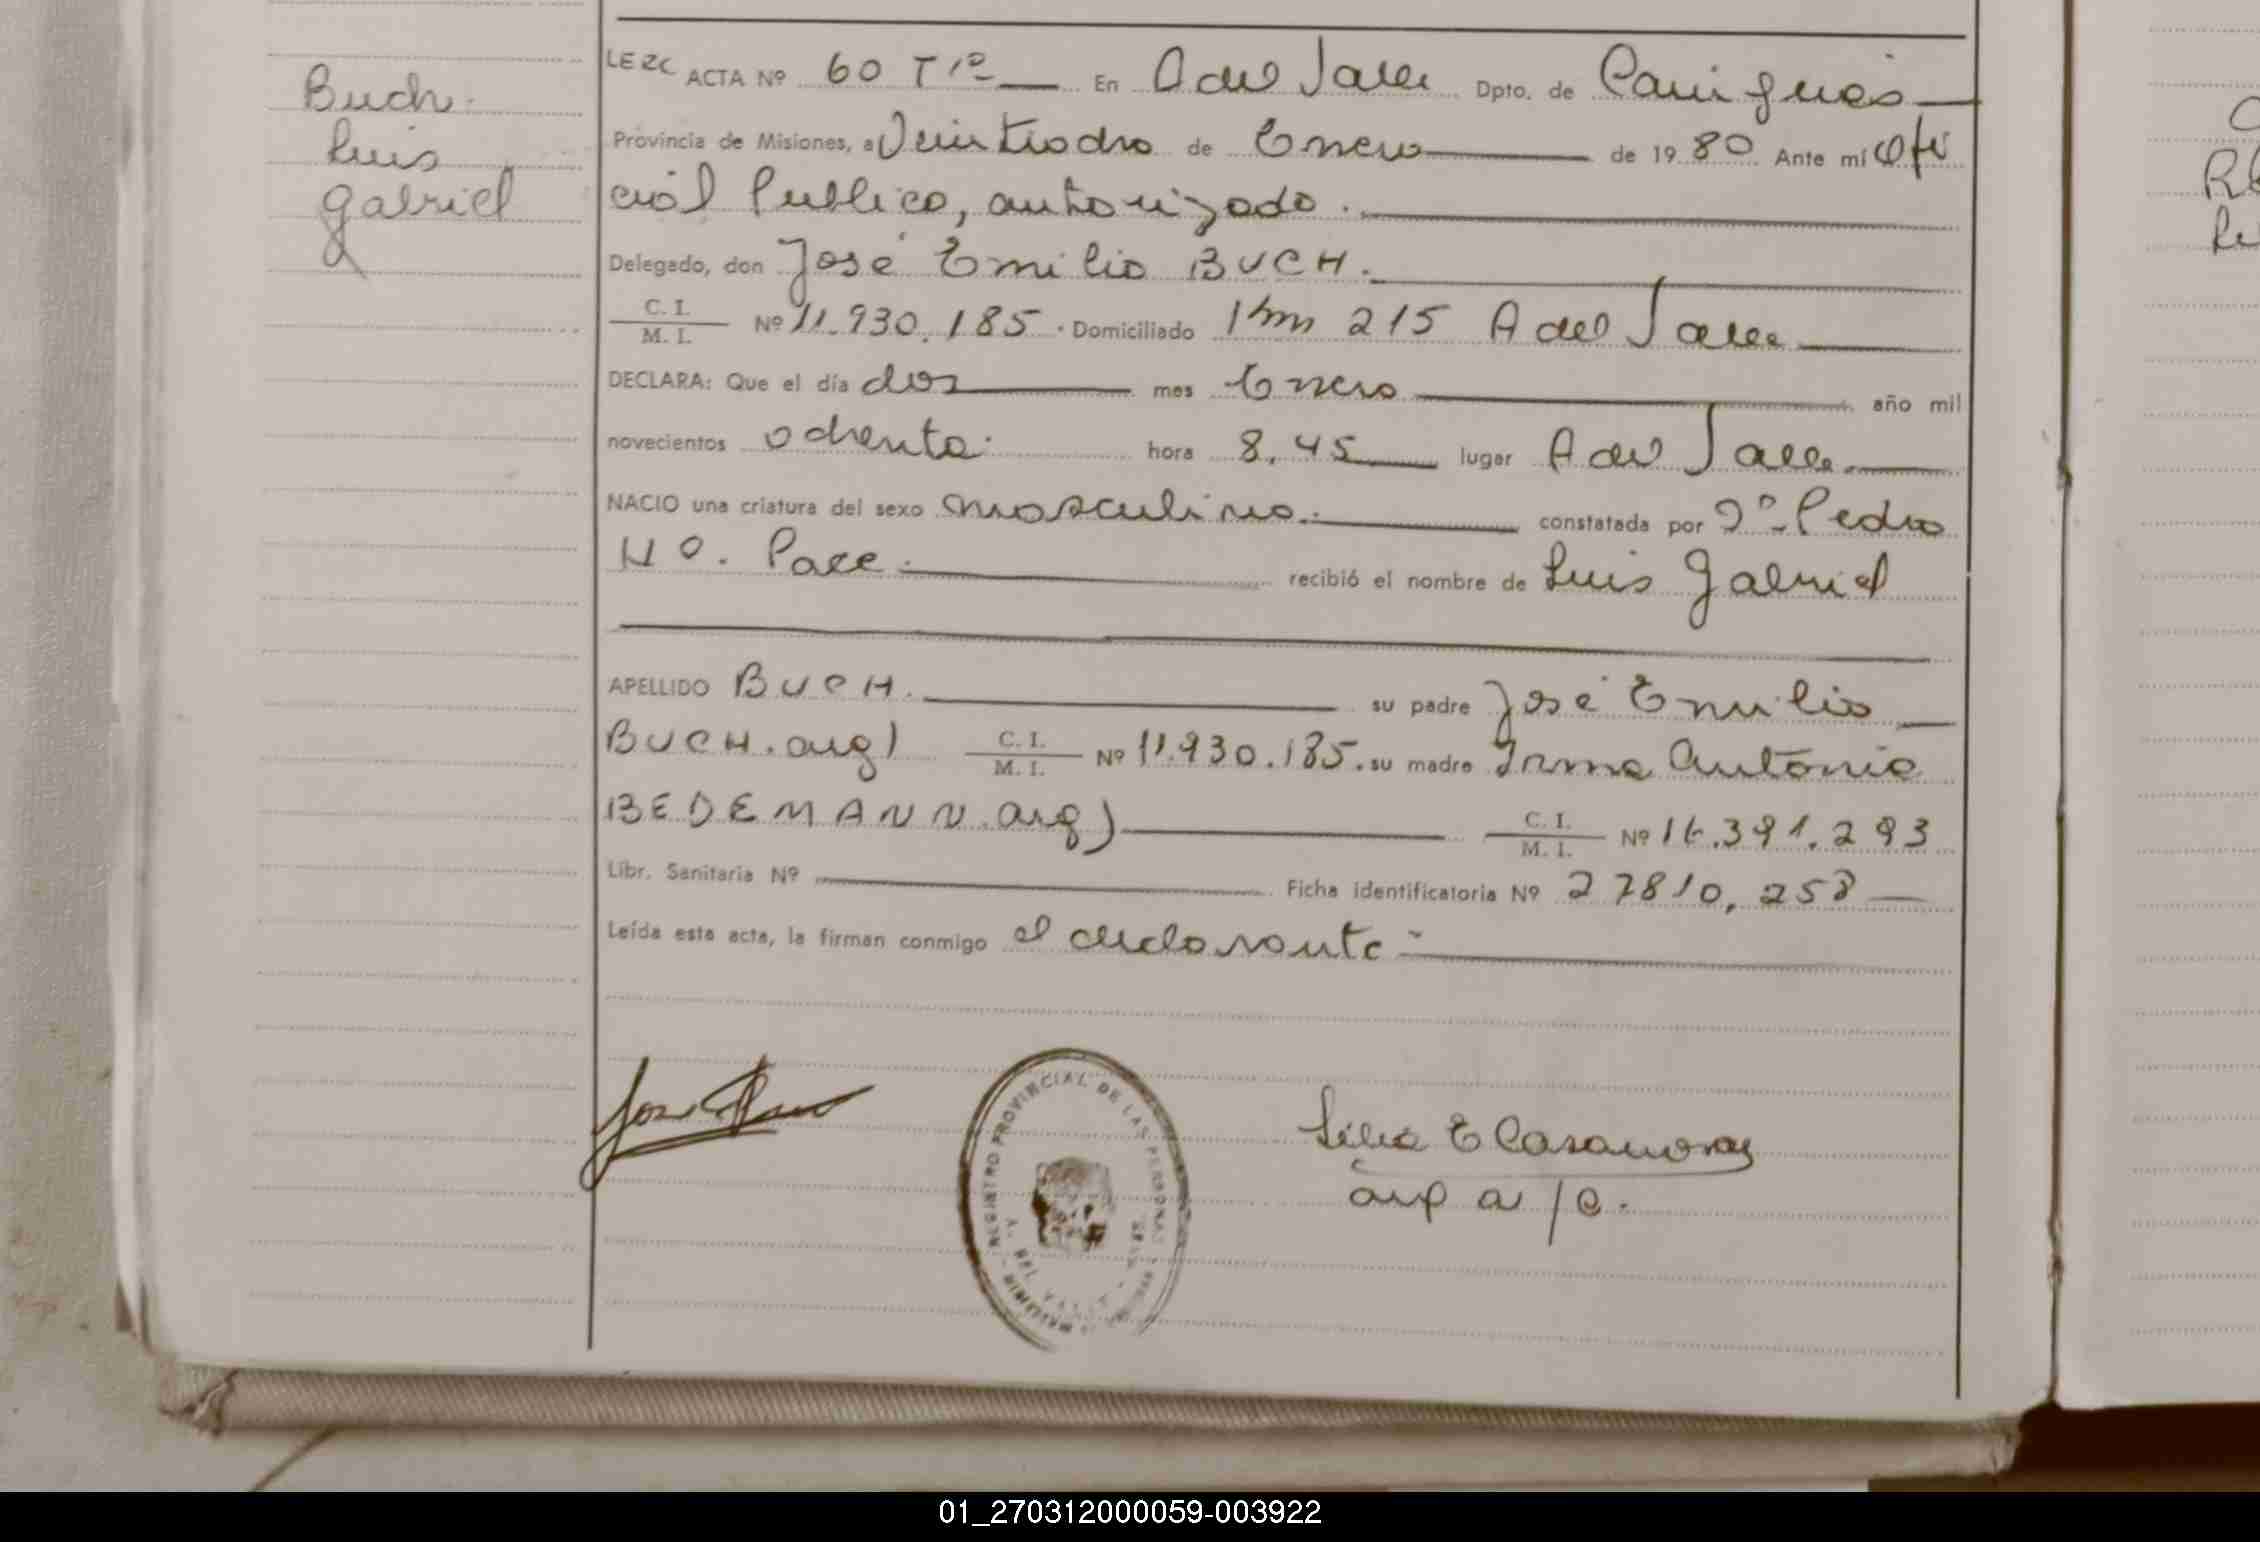 Buch
Luis
Gabriel
LEZC ACTA Nº 60 Tº 1º En A del Valle Dpto. de Cainguás
Provincia de Misiones, a Veintiocho de Enero de 1980 Ante mí Ofi
cial Publico, autorizado.
Delegado, don José Emilio BUCH.
C. I.
M. I. Nº 11.930.185. Domiciliado Km 215 A del Valle
DECLARA: Que el día dos mes Enero año mil
novecientos ochenta. hora 8,45 lugar A del Valle
NACIO una criatura del sexo masculino. constatada por Dº Pedro
H O. Pace. recibió el nombre de Luis Gabriel
APELLIDO BUCH. su padre José Emilio
BUCH. arg) C. I.
M. I. Nº 11.930.185. su madre Irma Antonia
BEDEMANN. arg) C. I.
M. I. Nº 16.391.293
Libr. Sanitaria Nº Ficha identificatoria Nº 27810,258
Leída esta acta, la firman conmigo el declarante
REGISTRO PROVINCIAL DE LAS PERSONAS
A. DEL VALLE
Lilia E Casanovas
a/c.
01_270312000059-003922